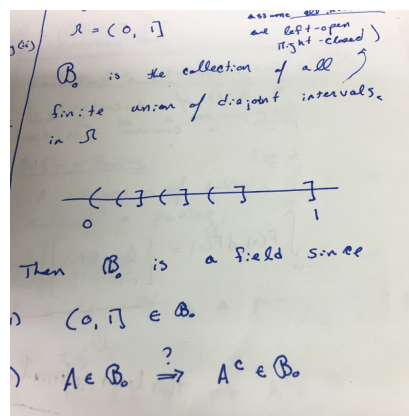 (ii)
Ω = (0, 1]
assume
are left-open
right-closed)
B₀ is the collection of all
finite union of disjoint intervals.
in Ω
( ( ] ( ] ( ] ]
0 1
Then B₀ is a field since
) (0, 1] ∈ B₀
?
) A ∈ B₀ ⟹ Aᶜ ∈ B₀